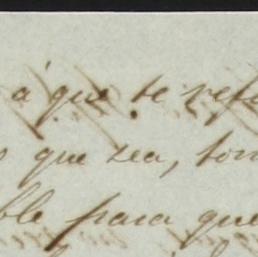 á que te refe
que sea, tom
ble para que